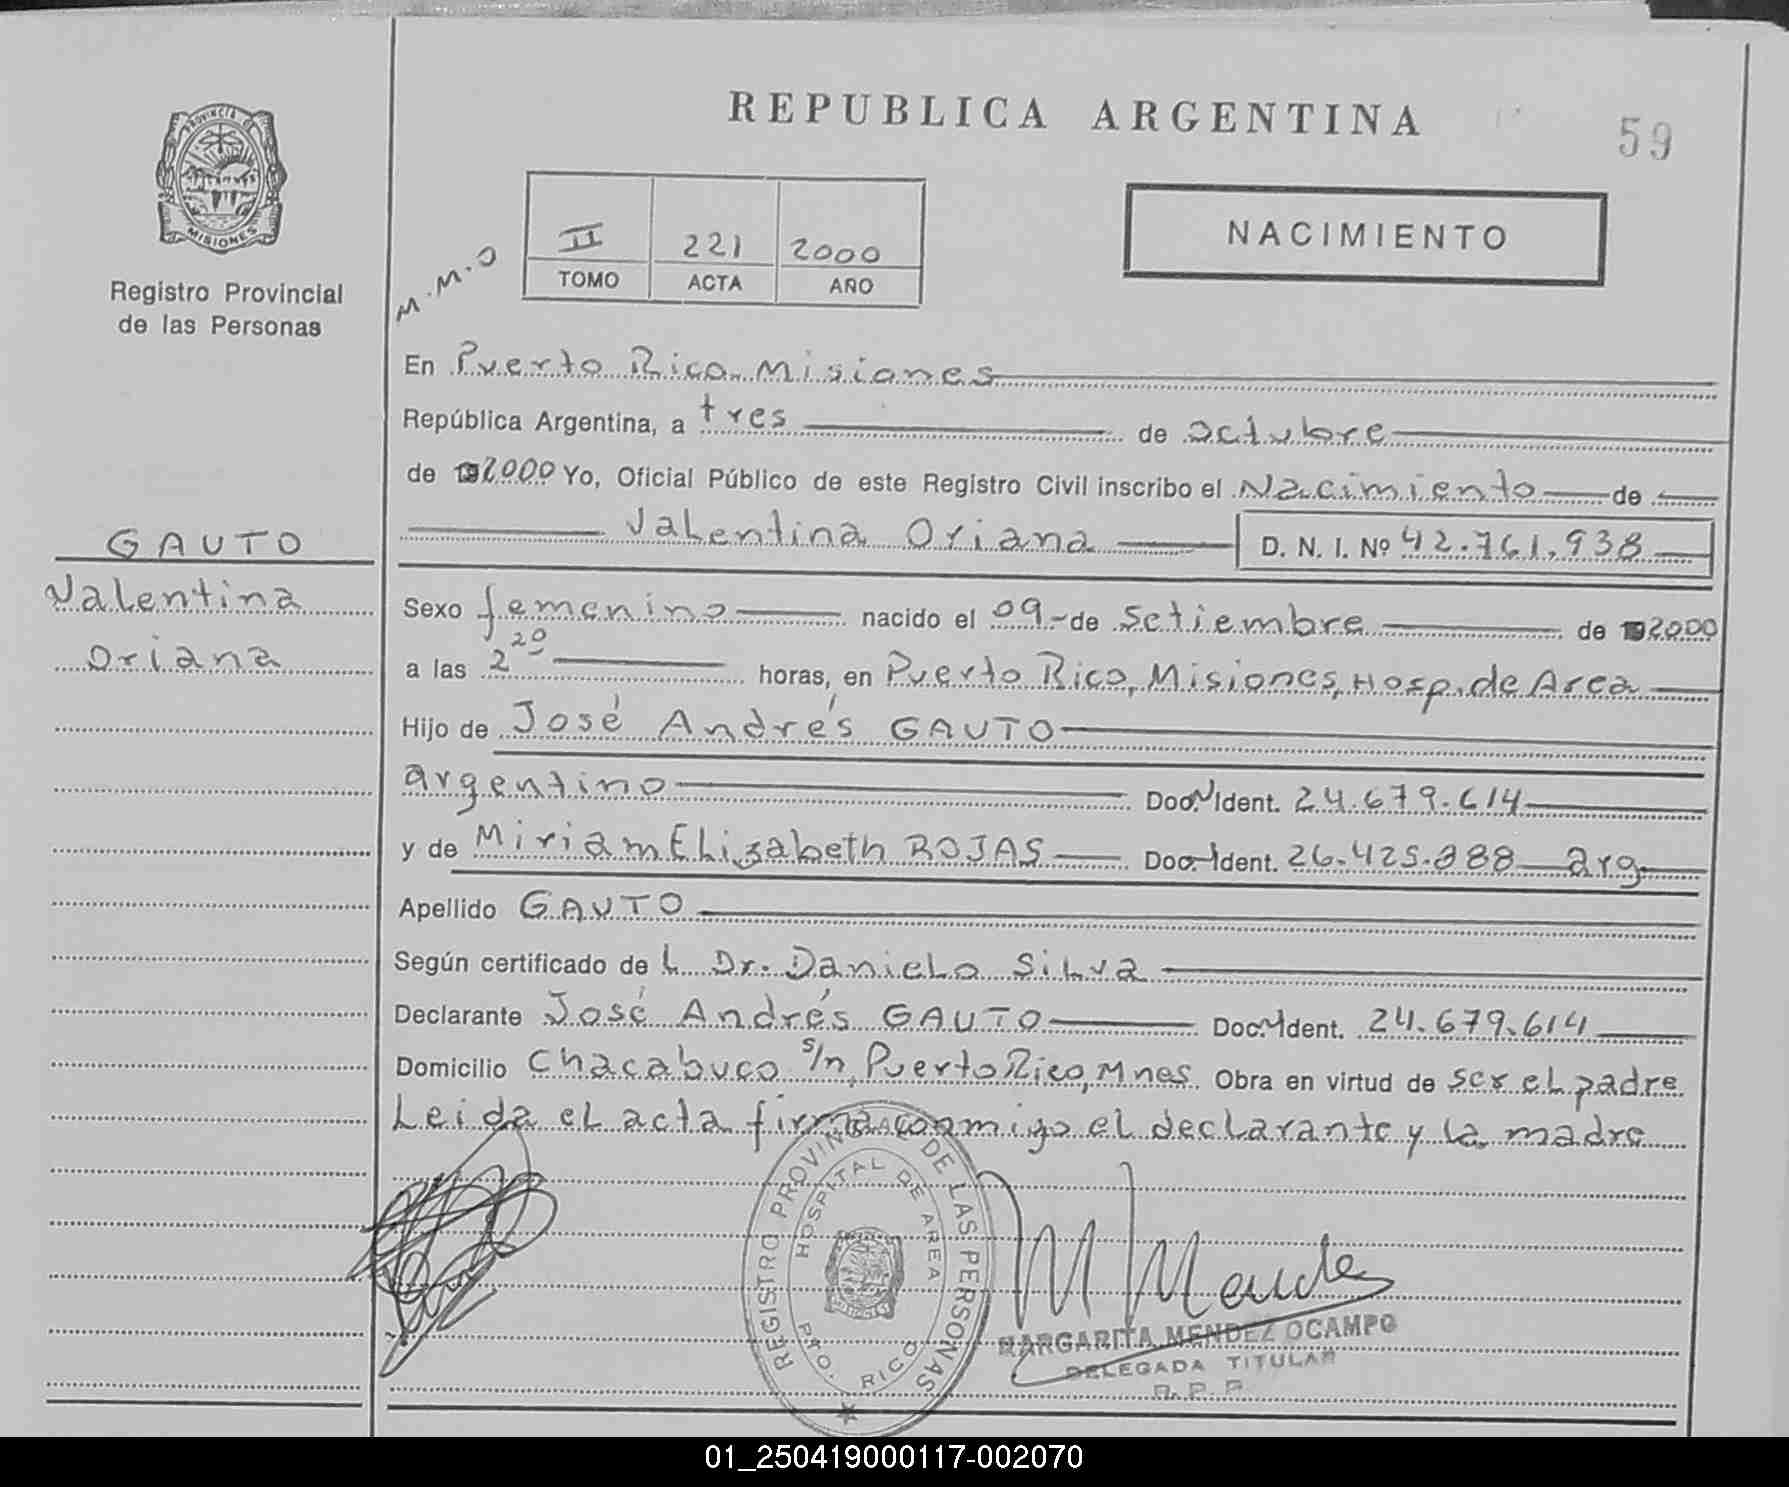 REPUBLICA ARGENTINA
59
PROVINCIA DE
MISIONES
Registro Provincial
de las Personas
M.M.O
II 221 2000
TOMO ACTA AÑO
NACIMIENTO
En Puerto Rico Misiones
República Argentina, a tres de octubre
de 2000 Yo, Oficial Público de este Registro Civil inscribo el Nacimiento de
Valentina Oriana D. N. I. Nº 42.761.938
GAUTO
Valentina
Oriana
Sexo femenino nacido el 09 de Setiembre de 2000
a las 2 20 horas, en Puerto Rico, Misiones, Hosp. de Area
Hijo de José Andrés GAUTO
argentino Doc. Ident. 24.679.614
y de Miriam Elizabeth ROJAS Doc. Ident. 26.425.388 arg
Apellido GAUTO
Según certificado de L Dr. Daniel Silva
Declarante José Andrés GAUTO Doc. Ident. 24.679.614
Domicilio Chacabuco s/n, Puerto Rico, Mnes. Obra en virtud de ser el padre
Leida el acta firma conmigo el declarante y la madre
REGISTRO PROVINCIAL DE LAS PERSONAS
HOSPITAL DE AREA
PTO. RICO
MISIONES
M Mendez
MARGARITA MENDEZ OCAMPO
DELEGADA TITULAR
R. P. P.
01_250419000117-002070